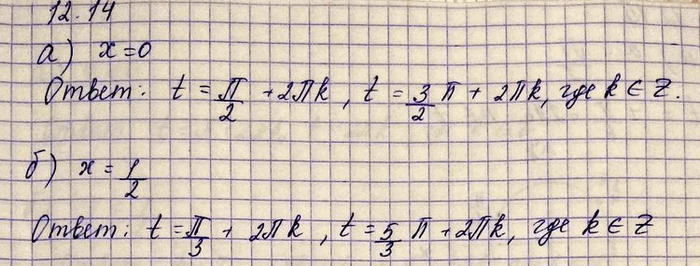 12.14
а) x = 0
Ответ: t = π/2 + 2πk, t = 3/2 π + 2πk, где k ∈ Z.
б) x = 1/2
Ответ: t = π/3 + 2πk, t = 5/3 π + 2πk, где k ∈ Z